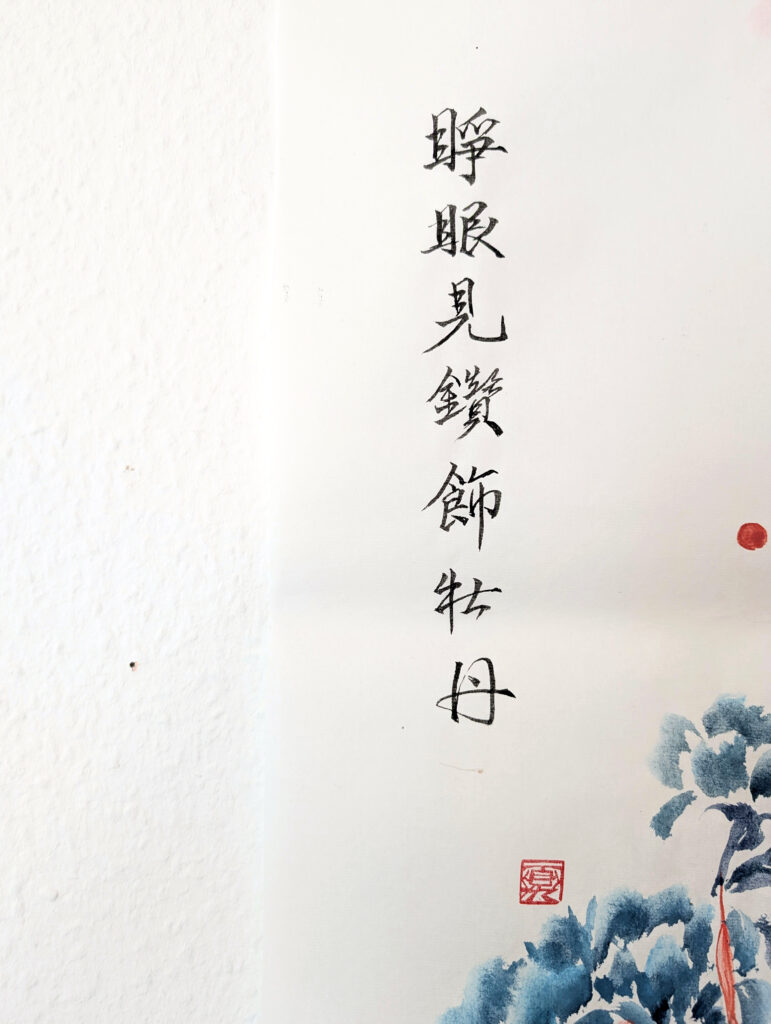 睜眼見鑽飾牡丹